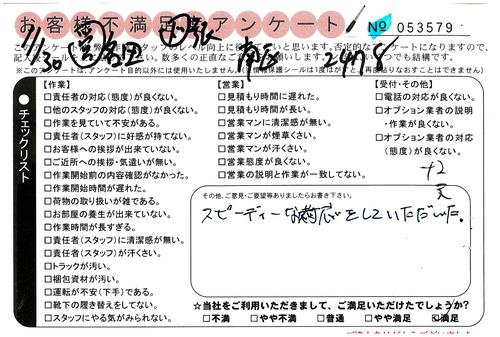 お客様不満足度アンケート
No 053579
11/30
2478
(このアンケートは、アンケート目的以外には使用いたしません。
チェックリスト
【作業】
□責任者の対応(態度)が良くない。
□他のスタッフの対応(態度)が良くない。
□作業を見ていて不安がある。
□責任者(スタッフ)に好感が持てない。
□お客様への挨拶が出来ていない。
□ご近所への挨拶・気遣いが無い。
□作業開始前の内容確認がなかった。
□作業開始時間が遅れた。
□荷物の取り扱いが雑である。
□お部屋の養生が出来ていない。
□作業時間が長すぎる。
□責任者(スタッフ)に清潔感が無い。
□責任者(スタッフ)が汗くさい。
□トラックが汚い。
□梱包資材が汚い。
□運転が不安(下手)である。
□靴下の履き替えをしてない。
□スタッフにやる気がみられない。
【営業】
□見積もり時間に遅れた。
□見積もり時間が長い。
□営業マンに清潔感が無い。
□営業マンが煙草くさい。
□営業マンが汗くさい。
□営業態度が良くない。
□営業の説明と作業が一致してない。
【受付・その他】
□電話の対応が良くない。
□オプション業者の説明
・作業が良くない。
□オプション業者の対応
(態度)が良くない。
+2
その他、ご意見・ご要望等ありましたらお書き下さい。
スピーディーな対応をしていただいた。
☆当社をご利用いただきまして、ご満足いただけたでしょうか?
□不満 □やや不満 □普通 □やや満足 ☑満足